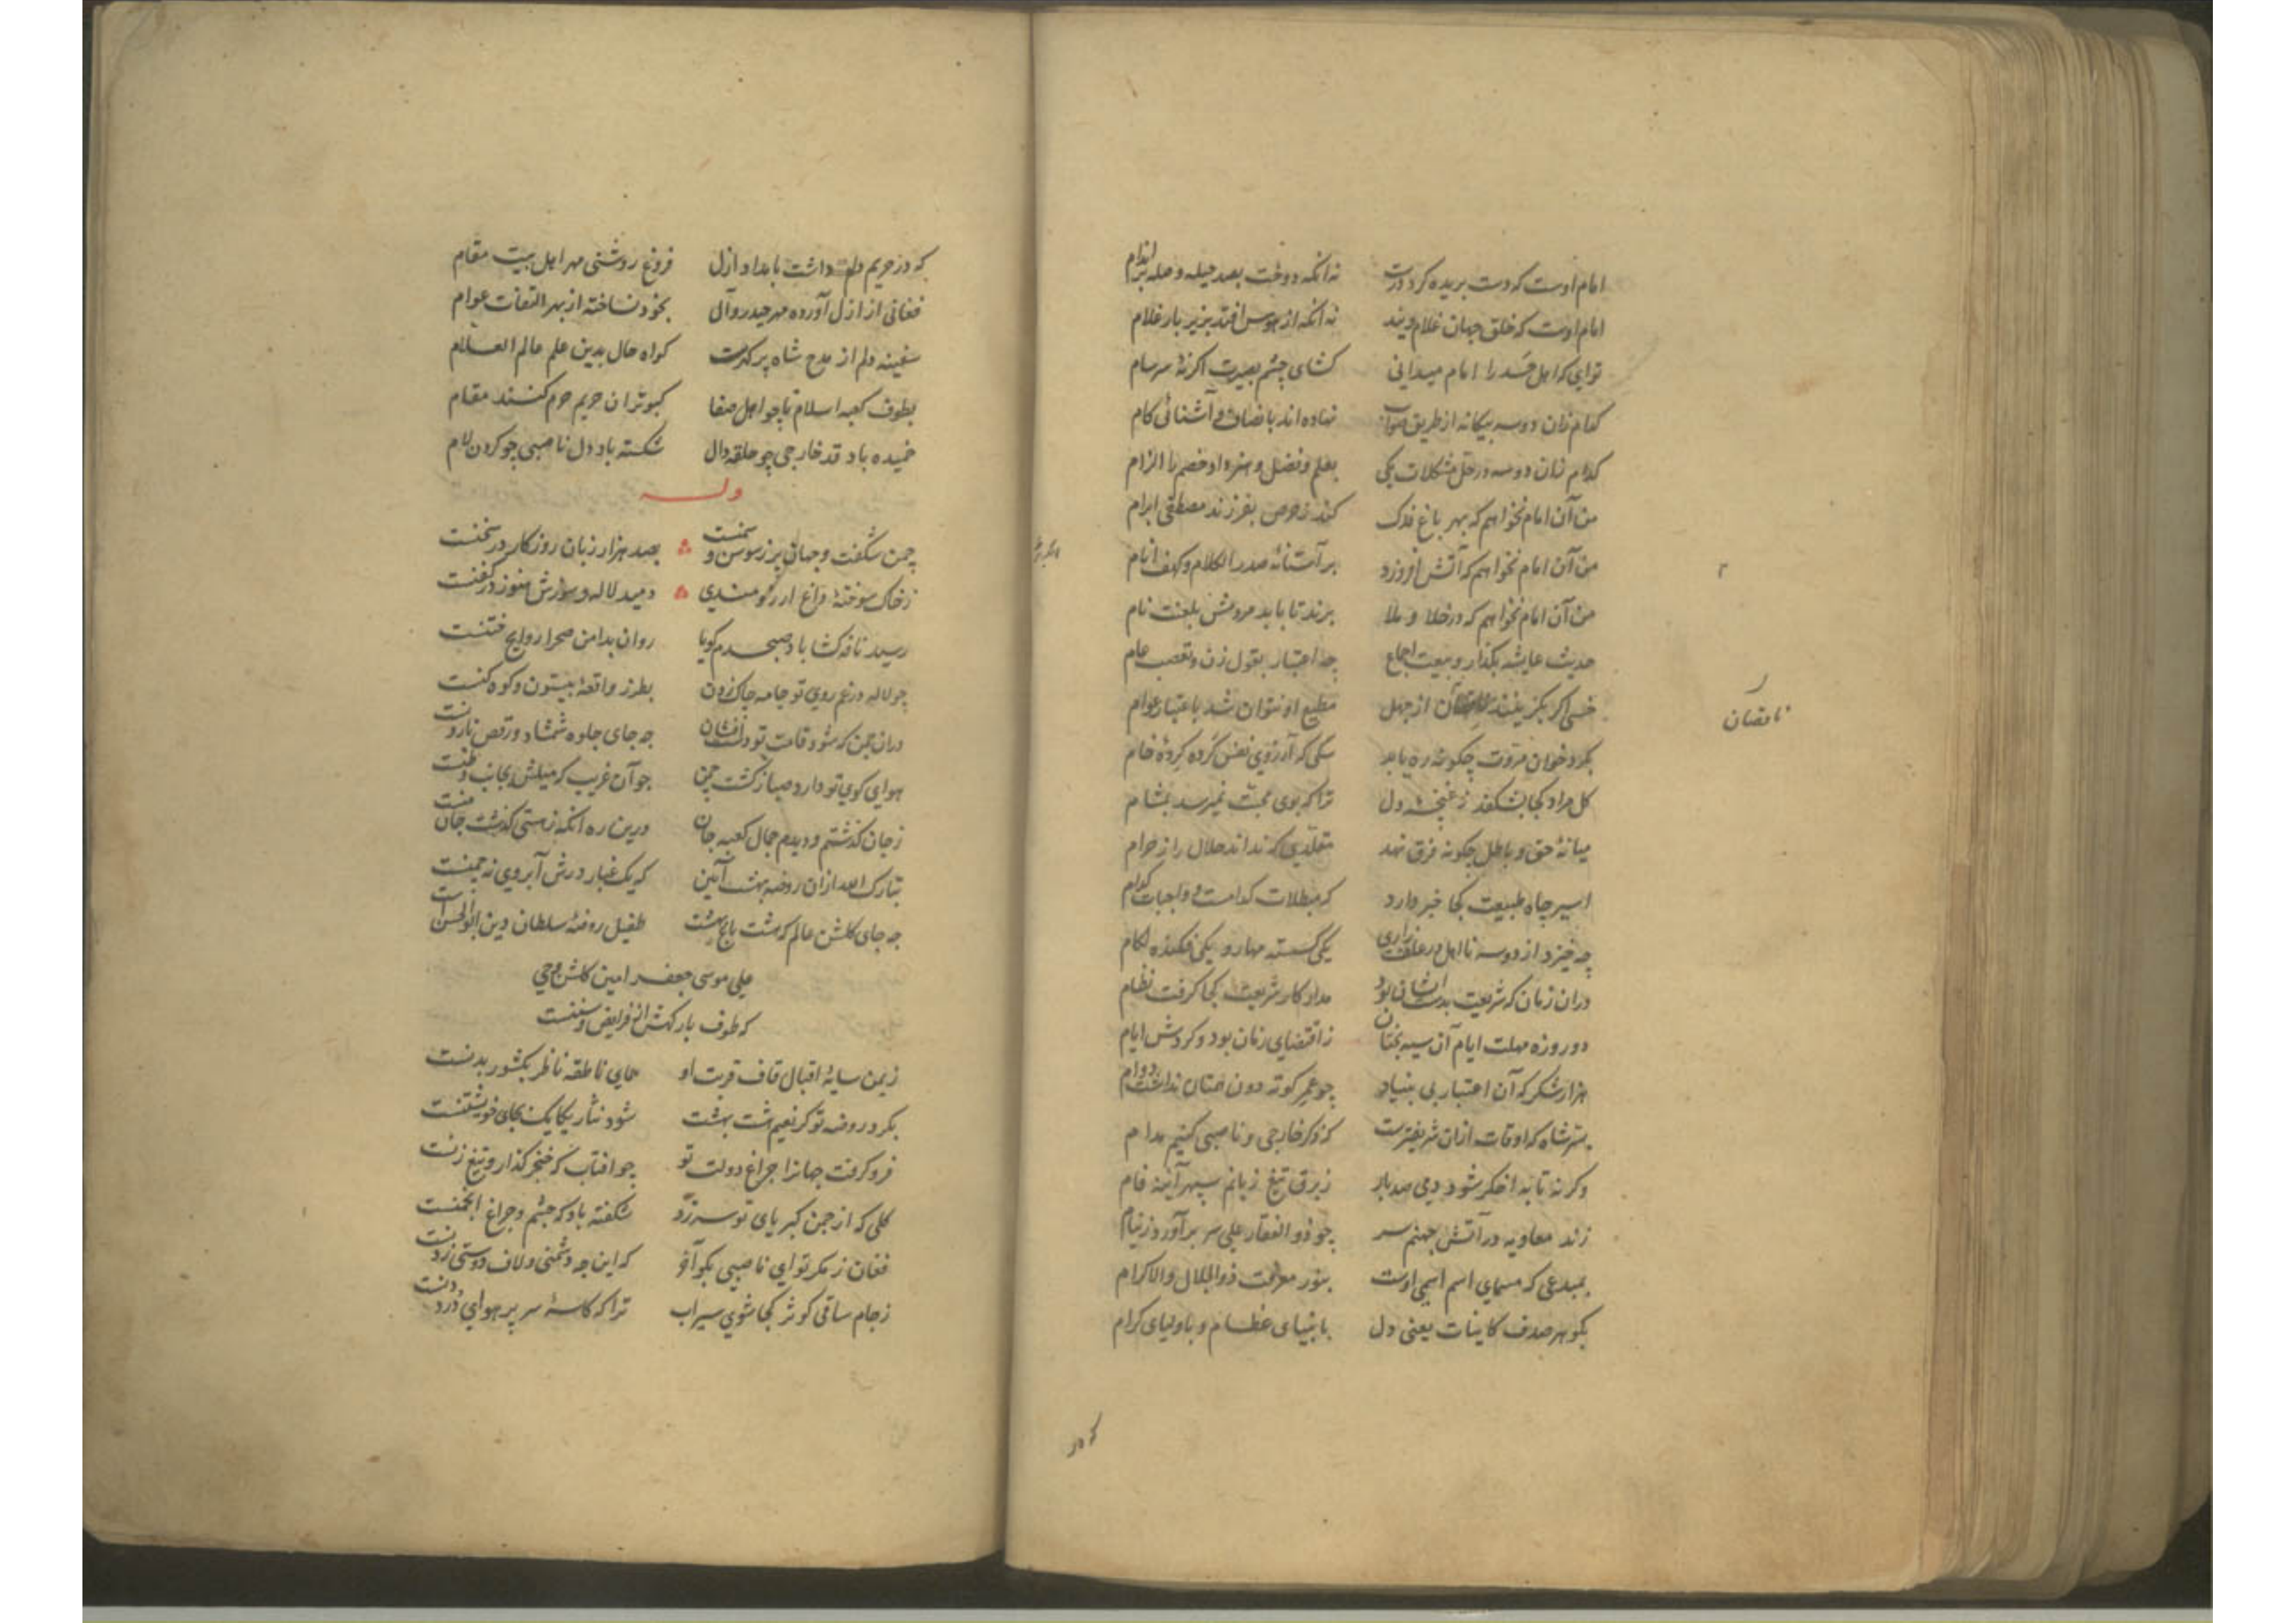 امام اوست که دست بریده کرد درست نه آنکه دوخت بصد حیله و حله بر اندام
امام اوست که خلق جهان غلام ویند نه آنکه از هوس افتد بزیر بار غلام
تو ای که اهل حسد را امام میدانی کشای چشم بصیرت اکر نهٔ سرسام
کدام زان دو سه بیکانه از طریق صواب نهاده اند بانصاف و آشنائی کام
کدام زان دو سه در حل مشکلات یکی بعلم و فضل و هنر داد خصم را الزام
من آن امام نخواهم که بهر باغ فدک کند ز حرص بفرزند مصطفی ابرام
من آن امام نخواهم که آتش افروزد بر آستانهٔ صدر الکلام و کهف انام
من آن امام نخواهم که در خلا و ملا برند تا بابد مردمش بلعنت نام
حدیث عایشه بکذار و بیعت اجماع چه اعتبار بقول زن و تعصب عام
خسی اکر بکزینند از جهل مطیع او نتوان شد باعتبار عوام
ناقصان
بکرد خوان مروت چکونه ره یابد سکی که آرزوی نفس کرده کردهٔ خام
کل مراد کجا بشکفد ز غنچهٔ دل ترا که بوی محبت نمیرسد بمشام
میانهٔ حق و باطل چکونه فرق نهد مقلدی که نداند حلال را ز حرام
اسیر چاه طبیعت کجا خبر دارد که مبطلات کدامست و واجبات کدام
چه خیزد از دو سه نااهل در علف زاری یکی کسسته مهار و یکی فکنده لکام
دران زمان که شریعت بدستشان بود مدار کار شریعت کجا کرفت نظام
دو روزه مهلت ایام آن سیه بختان ز اقتضای زمان بود و کردش ایام
هزار شکر که آن اعتبار بی بنیاد چو عمر کوته دون همتان نداشت دوام
بسر شاه که اوقات ازان شریفترست که ذکر خارجی و ناصبی کنیم مدام
وکرنه تا بد اخکر شود دمی صد بار ز برق تیغ زبانم سپهر آینه فام
زند معاویه در آتش جهنم سر چو ذو الفقار علی سر برآورد ز نیام
بمبدعی که مسمای اسم اوست بنور معرفت ذو الجلال و الاکرام
بکوهر صدف کاینات یعنی دل بانبیای عظام و باولیای کرام
که در
که در حریم دلم داشت بامداد ازل فروغ روشنی مهر اهل بیت مقام
فغانی از ازل آورده مهر حیدر و آل بخود نساخته از بهر التفات عوام
سفینه دلم از مدح شاه پر کهرست کواه حال بدین علم عالم العلام
بطوف کعبه اسلام تا چو اهل صفا کبوتران حریم حرم کنند مقام
خمیده باد قد خارجی چو حلقه دال شکسته باد دل ناصبی چو کردن لام
وله
چمن شکفت و جهان پر ز سوسن و سمنست بصد هزار زبان روزکار در سخنست
ز خاک سوختهٔ داغ آرزومندی دمید لاله و سوزش هنوز در کفنست
رسید نافه کشا باد صبحدم کویا روان بدامن صحرا روایح ختنست
چو لاله در غم روی تو جامه چاک زدن بطرز واقعهٔ بیستون و کوه کنست
دران چمن که شود قامت تو دست افشان چه جای جلوه شمشاد و رقص نارونست
هوای کوی تو دارد صبا ز کشت چمن چو آن غریب که میلش بجانب وطنست
ز جان کذشتم و دیدم جمال کعبه جان درین ره آنکه ز هستی کذشت جان منست
تبارک الله ازان روضه بهشت آیین که یک غبار درش آبروی نه چمنست
چه جای کلشن عالم که هشت باغ بهشت طفیل روضهٔ سلطان دین ابو الحسنست
علی موسی جعفر امین کلشن وحی
که طوف بارکهش از فرایض و سننست
ز یمن سایهٔ اقبال قاف قربت او همای ناطقه ناظر بکشور بدنست
بکرد روضه تو کز نعیم هشت بهشت شود نثار یکایک بجای خویشتنست
فرو کرفت جهانرا چراغ دولت تو چو افتاب که خنجر کذار و تیغ زنست
کلی که از چمن کبریای تو سر زد شکفته باد که چشم و چراغ انجمنست
فغان ز مکر تو ای ناصبی بکو آخر که این چه دشمنی و لاف دوستی زدنست
ز جام ساقی کوثر کجا شوی سیراب ترا که کاسهٔ سر پر هوای درد دنست